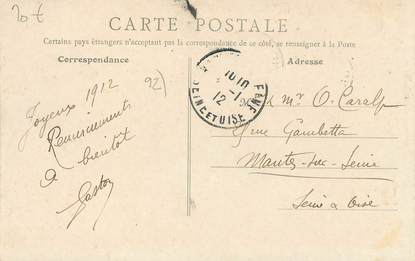 20 €
CARTE POSTALE
Certains pays étrangers n'acceptant pas la correspondance de ce côté, se renseigner à la Poste
Correspondance
Adresse
92
Joyeux 1912
Remerciements
A bientôt
Gaston
12
SEINE ET OISE
Mr O.
Rue Gambetta
Mantes-sur-Seine
Seine & Oise